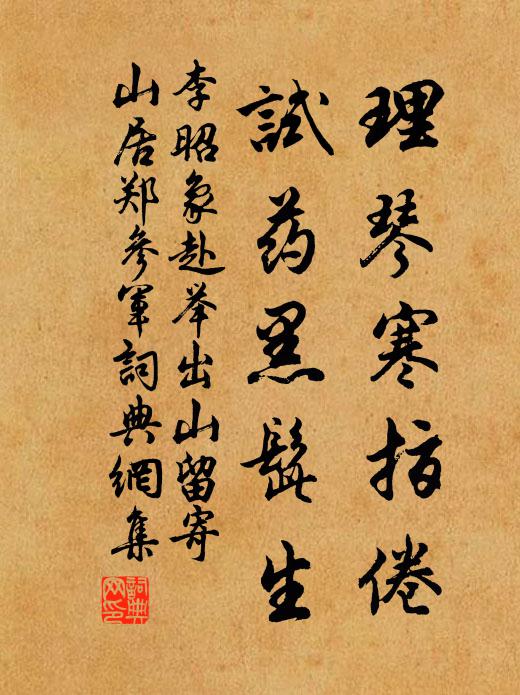 理琴寒指倦
試药黑髭生
李昭象赴举出山留寄
山居郑参军詞典網集
詞典網印